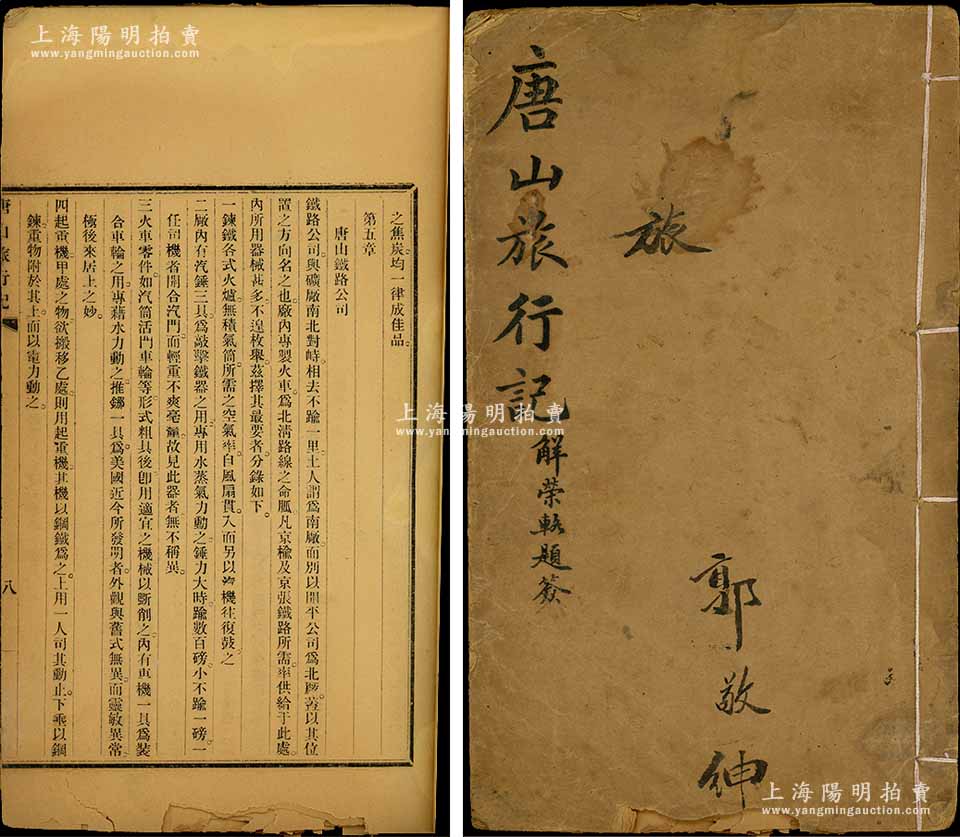 上海陽明拍賣
www.yangmingauction.com
之焦炭均一律成佳品。
第五章
唐山鐵路公司
鐵路公司與礦廠南北對峙。相去不踰一里。土人謂爲南廠。而別以開平公司爲北廠。蓋以其位
置之方向名之也。廠內專製火車。爲北淸路線之命脈。凡京楡及京張鐵路所需。率供給于此處。
內所用器械甚多。不遑枚舉。茲擇其最要者。分錄如下。
一鍊鐵各式火爐。無積氣筒。所需之空氣。率自風扇貫入。而另以汽機往復鼓之
二廠內有汽錘三具。爲敲擊鐵器之用。專用水蒸氣力動之。錘力大時踰數百磅。小不踰一磅。一
任司機者開合汽門。而輕重不爽毫釐。故見此器者。無不稱異。
三火車零件。如汽筒活門車輪等。形式粗具後。卽用適宜之機械以斷削之。內有車機一具。爲裝
合車輪之用。專藉水力動之。推鎯一具。爲美國近今所發明者。外觀與舊式無異。而靈敏異常
極後來居上之妙。
四起重機。甲處之物。欲搬移乙處。則用起重機。其機以鋼鐵爲之。上用一人司其動止。下乘以鋼
鍊。重物附於其上。而以電力動之。
唐山旅行記
八
上海陽明拍賣
www.yangmingauction.com
唐山旅行記
解荣輅題簽
旅
郭敬紳
上海陽明拍賣
www.yangmingauction.com
上海陽明拍賣
www.yangmingauction.com